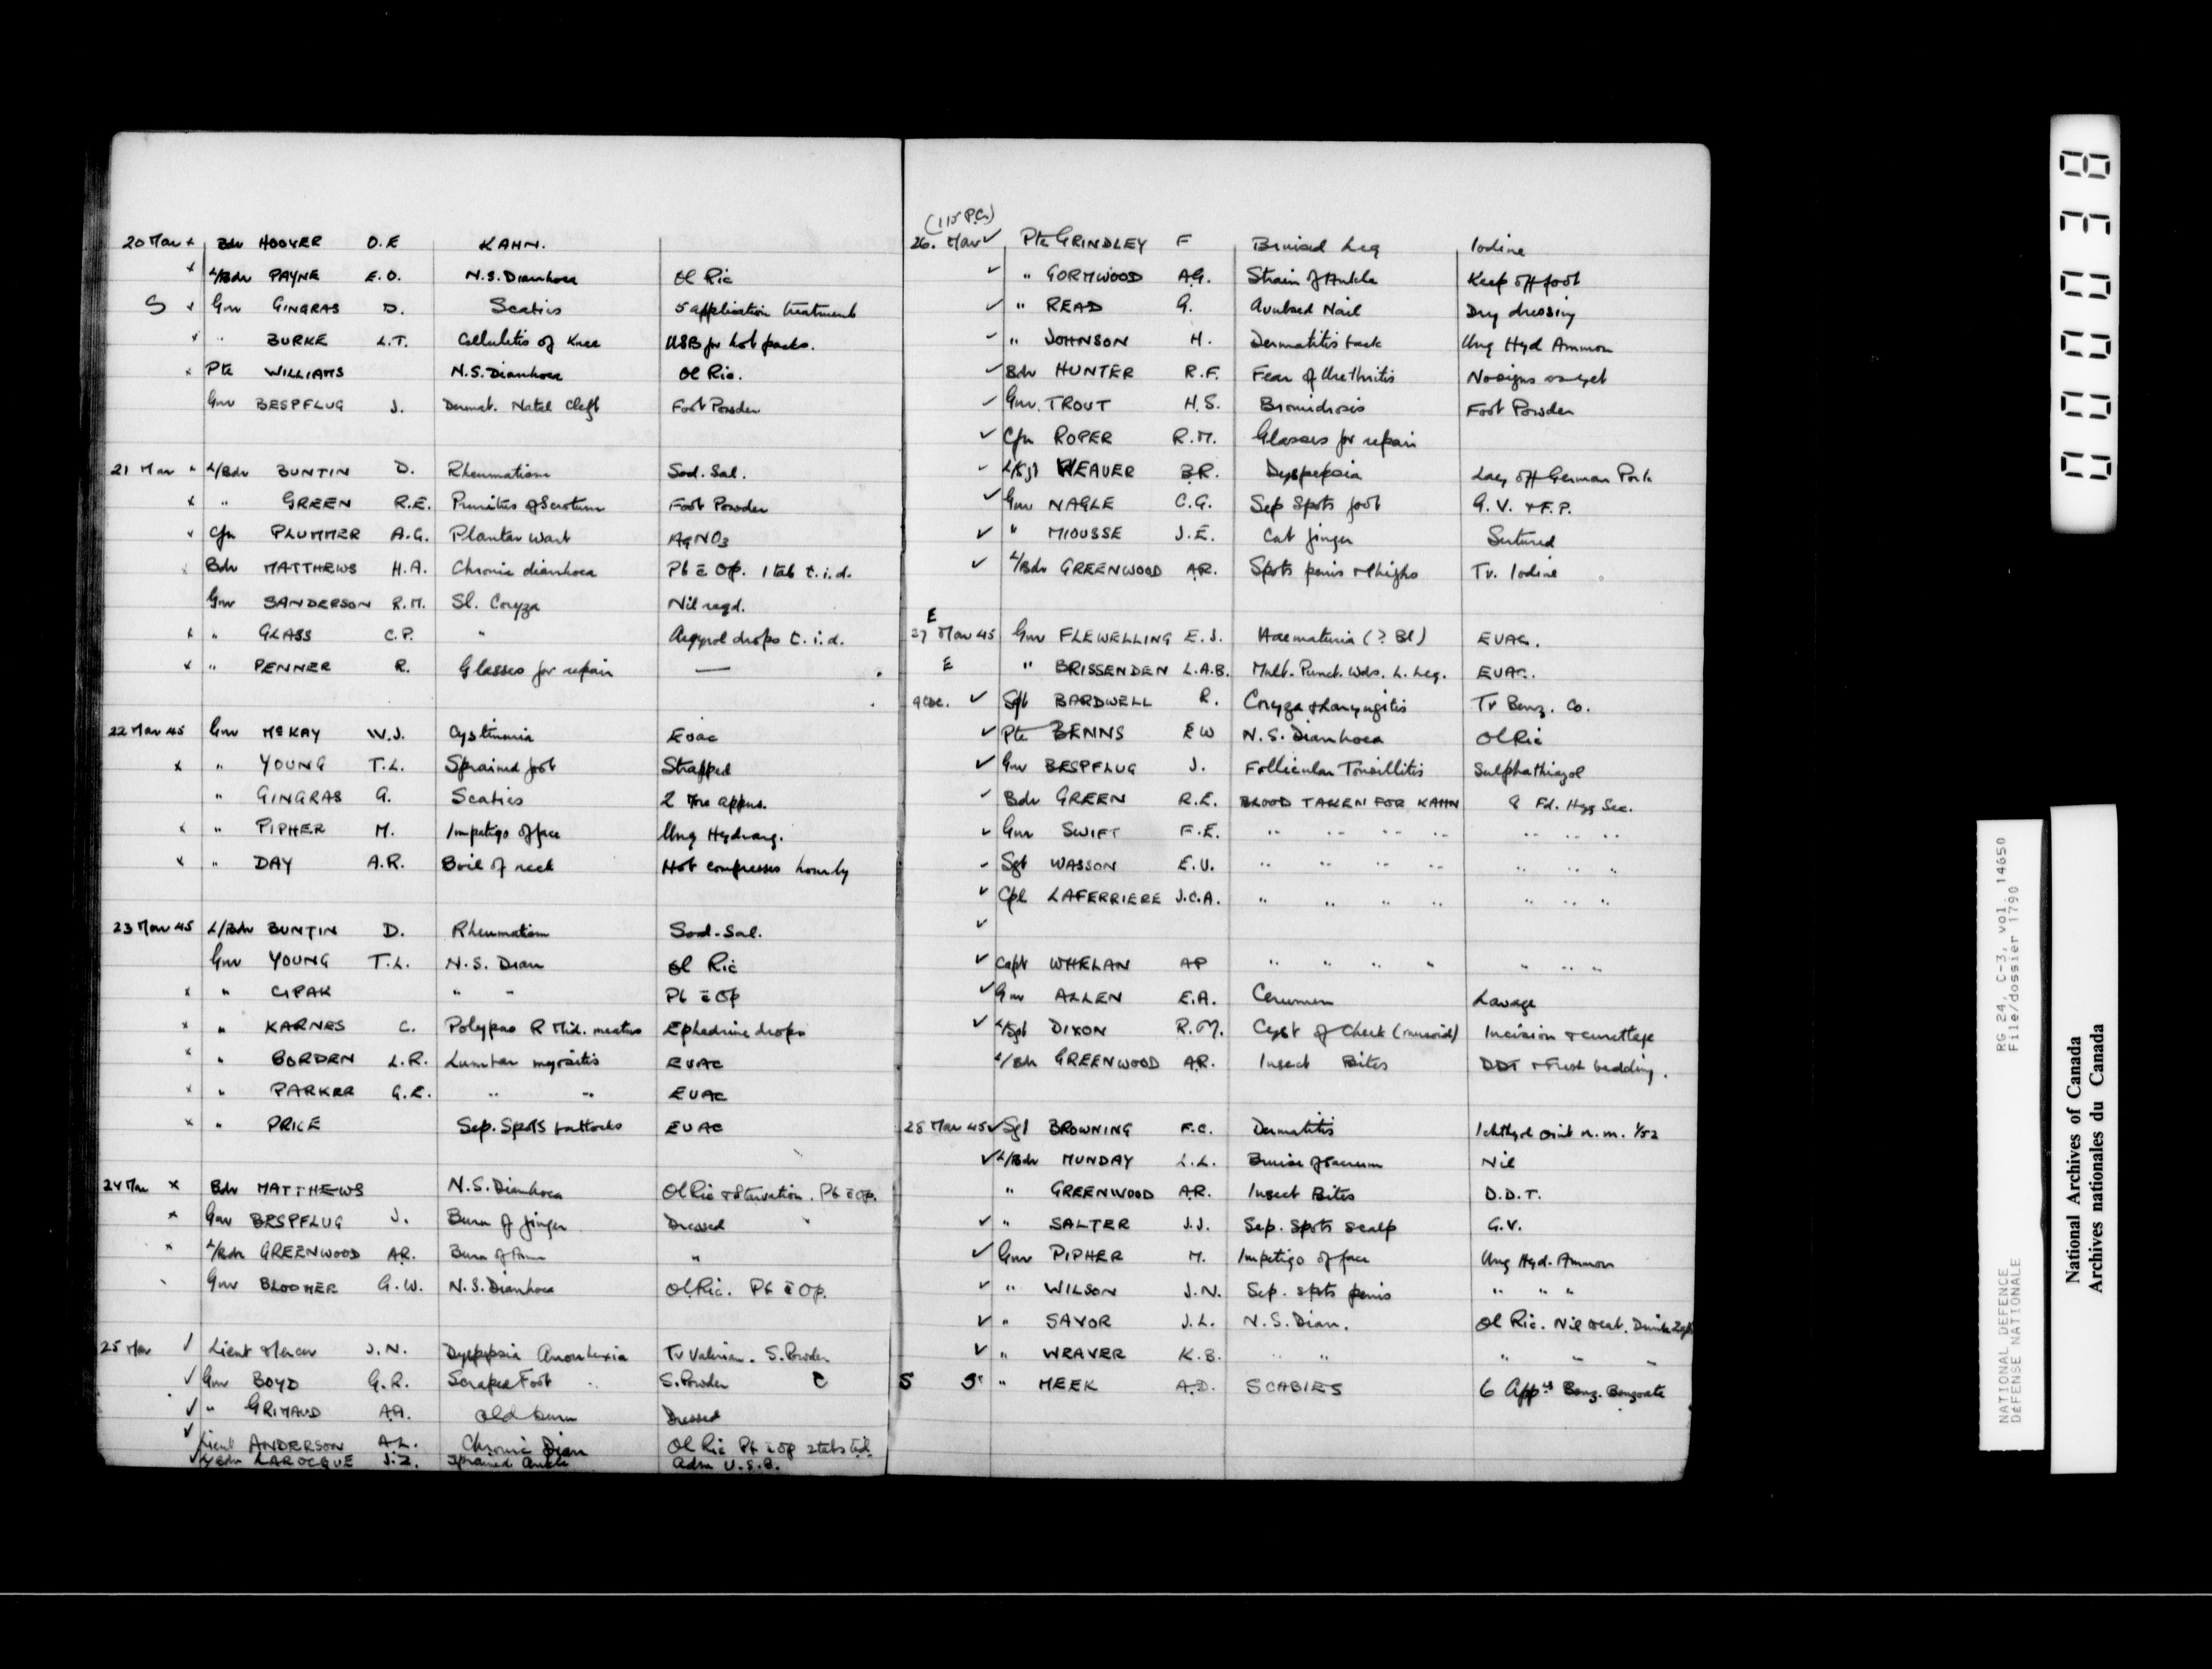 20 Mar x Bdr HOOVER O.E KAHN.
x L/Bdr PAYNE E.O. N.S. Diarrhoea Ol Ric
S x Gnr GINGRAS D. Scabies 5 application treatment
x " BURKE L.T. Cellulitis of Knee USB for hot packs.
x Pte WILLIAMS N.S. Diarrhoea Ol Ric.
Gnr BESPFLUG J. Dermat. Natal Cleft Foot Powder
21 Mar x L/Bdr BUNTIN D. Rheumatism Sod. Sal.
x " GREEN R.E. Pruritus of Scrotum Foot Powder
x Cfn PLUMMER A.G. Plantar Wart AgNO3
x Bdr MATTHEWS H.A. Chronic diarrhoea Pb c̄ Op. 1 tab t.i.d.
Gnr SANDERSON R.M. Sl. Coryza Nil reqd.
x " GLASS C.P. " Argyrol drops t.i.d.
x " PENNER R. Glasses for repair —
22 Mar 45 Gnr McKAY W.J. Cystinuria Evac
x " YOUNG T.L. Sprained foot Strapped
" GINGRAS G. Scabies 2 More appns.
x " PIPHER M. Impetigo of face Ung Hydrarg.
x " DAY A.R. Boil of neck Hot compresses hourly
23 Mar 45 L/Bdr BUNTIN D. Rheumatism Sod. Sal.
Gnr YOUNG T.L. N.S. Diarr Ol Ric
x " CIPAK " " Pb c̄ Op
x " KARNES C. Polypus R Mid. meatus Ephedrine drops
x " BORDEN L.R. Lumbar myositis EVAC
x " PARKER G.E. " " EVAC
x " PRICE Sep. Spots buttocks EVAC
24 Mar x Bdr MATTHEWS N.S. Diarrhoea Ol Ric & Starvation. Pb c̄ Op.
x Gnr BESPFLUG J. Burn of finger Dressed
x L/Bdr GREENWOOD A.R. Burn of "
Gnr BLOOMER G.W. N.S. Diarrhoea Ol Ric. Pb c̄ Op.
25 Mar ✓ Lieut Mercer J.N. Dyspepsia Tr Valerian. S. Powder
✓ Gnr BOYD G.R. Scraped Foot S. Powder
✓ " GRIMAUD A.A. Old burn Dressed
✓ Lieut ANDERSON A.L. Chronic Diarr Ol Ric Pb c̄ Op 2 tabs t.i.d.
✓ L/Bdr LAROCQUE J.Z. Sprained Ankle Adm U.S.B.
(115 P.C.)
26. Mar ✓ Pte GRINDLEY F Bruised Leg Iodine
✓ " GORMWOOD A.G. Strain of Ankle Keep off foot
✓ " READ G. Avulsed Nail Dry dressing
✓ " JOHNSON H. Dermatitis back Ung Hyd Ammon
✓ Bdr HUNTER R.F. Fear of Urethritis No signs as yet
✓ Gnr. TROUT H.S. Bromidrosis Foot Powder
✓ Cfn ROPER R.M. Glasses for repair
✓ L/Sgt WEAVER B.R. Dyspepsia Lay off German Pork
✓ Gnr NAGLE C.G. Sep Spots foot G.V. & F.P.
✓ " MIOUSSE J.E. Cut finger Sutured
✓ L/Bdr GREENWOOD A.R. Spots penis & thighs Tr. Iodine
E
27 Mar 45 Gnr FLEWELLING E.J. Haematuria (? Bl) EVAC.
E " BRISSENDEN L.A.B. Mult. Punct. Wds. L. Leg. EVAC.
✓ Sgt BARDWELL R. Coryza & Laryngitis Tr Benz. Co.
✓ Pte BENNS E W N.S. Diarrhoea Ol Ric
✓ Gnr BESPFLUG J. Follicular Tonsillitis Sulphathiazol
✓ Bdr GREEN R.E. BLOOD TAKEN FOR KAHN 8 Fd. Hyg Sec.
✓ Gnr SWIFT F.E. " " " " " " "
✓ Sgt WASSON E.V. " " " " " " "
✓ Cpl LAFERRIERE J.C.A. " " " " " " "
✓
✓ Capt WHELAN AP " " " " " " "
✓ Gnr ALLEN E.A. Cerumen Lavage
✓ L/Sgt DIXON R.M. Cyst of Cheek Incision & curettage
L/Bdr GREENWOOD A.R. Insect Bites DDT & Fresh bedding.
28 Mar 45 ✓ Sgt BROWNING F.C. Dermatitis Ichthyol oint n.m.
✓ L/Bdr MUNDAY L.L. Bruise of sacrum Nil
" GREENWOOD A.R. Insect Bites D.D.T.
✓ " SALTER J.J. Sep. Spots scalp G.V.
✓ Gnr PIPHER M. Impetigo of face Ung Hyd. Ammon
✓ " WILSON J.N. Sep. spots penis " " "
✓ " SAVOR J.L. N.S. Diarr. Ol Ric. Nil to eat.
✓ " WEAVER K.B. " " " " "
S S " MEEK A.D. SCABIES 6 Appns Benz. Benzoate
000038
RG 24, C-3, vol. 14650
File/dossier 1790
NATIONAL DEFENCE
DÉFENSE NATIONALE
National Archives of Canada
Archives nationales du Canada